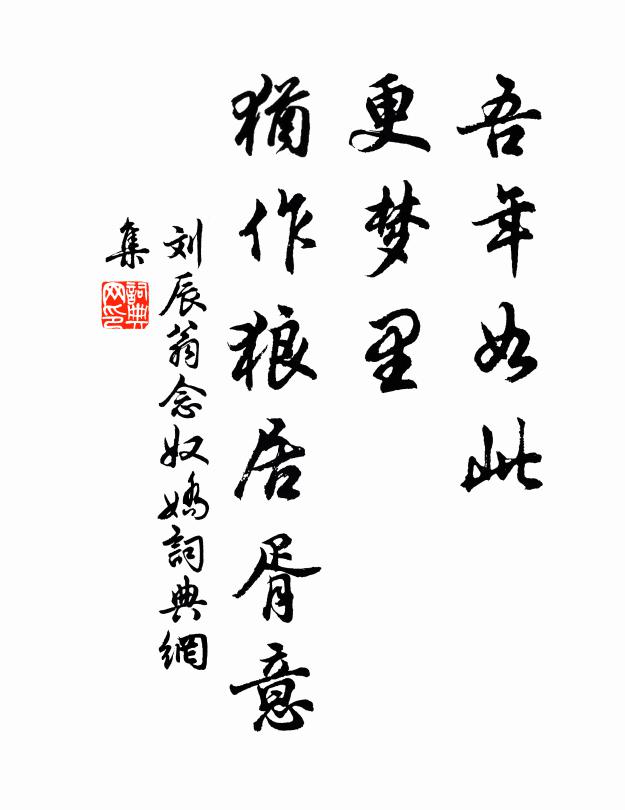 吾年如此
更梦里
猶作狼居胥意
刘辰翁念奴嬌詞典網
集
詞典网印